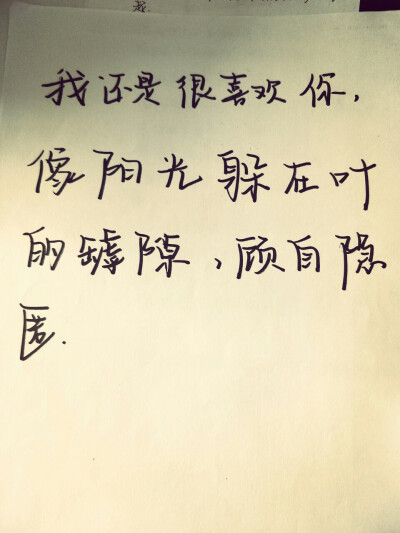 我
我还是很喜欢你，
像阳光躲在叶
的罅隙，顾自隐
匿.